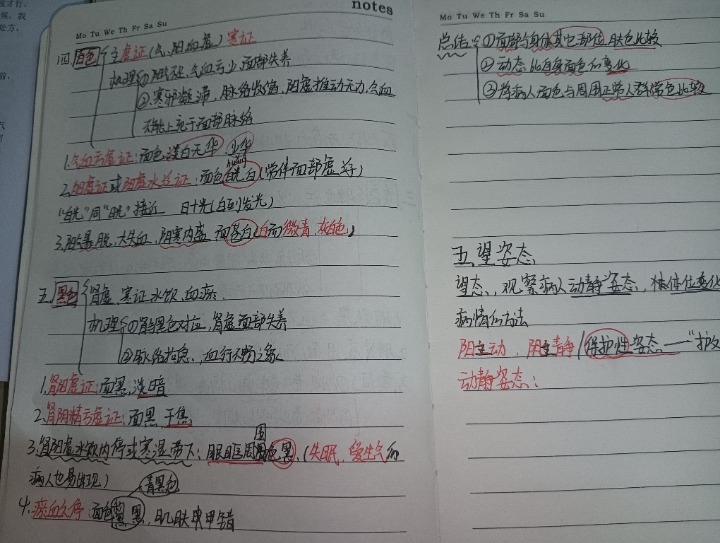 notes
Mo Tu We Th Fr Sa Su
四 白色 主虚证(气、阳血虚) 寒证
机理 ①阳不足,气血亏少,面部失养
②寒邪凝滞,脉络收缩,阳虚推动无力,气血
不能上充于面部脉络
1.气血亏虚证:面色淡白无华,少华
2.阳虚证或阳虚水泛证:面色㿠白(常伴面部虚浮)
"㿠"同"晄"接近 日+光(白到发光)
3.阳暴脱,大失血,阴寒内盛 面苍白(白而微青,灰白色)
五 黑色 肾虚 寒证 水饮 血瘀
机理 ①肾与黑色对应,肾虚面部失养
②脉络拘急,血行不畅
1.肾阳虚证:面黑,淡暗
2.肾阴精亏虚证:面黑 干焦
3.肾阳虚水饮内停或寒湿带下:眼眶周围色黑(失眠,爱生气的
病人也易出现)
青黑色
4.瘀血久停:面色黧黑,肌肤甲错
Mo Tu We Th Fr Sa Su
总结 ①面部与身体其它部位肤色比较
②动态比自身面色和变化
③将病人面色与周围正常人群常色比较
五.望姿态
望态:观察病人动静姿态,
病情的方法
阳主动,阴主静(保护性姿态—"护
动静姿态: